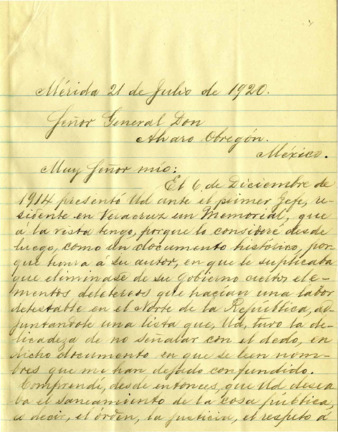 Mérida 21 de Julio de 1920.
Señor General Don
Alvaro Obregón.
México.
Muy Señor mío:
El 6 de Diciembre de
1914 presentó Ud ante el primer Jefe, re-
sidente en Veracruz un Memorial, que
a la vista tengo, porque lo consideré desde
luego, como un documento histórico, por
que honra á su autor, en que le suplicaba
que eliminase de su Gobierno ciertos ele-
mentos deletereos que hacían una labor
detestable en el Norte de la República, ad-
juntandole una lista que, Ud, tuvo la de-
licadeza de no señalar con el dedo, en
dicho documento en que se leen nom-
bres que me han dejado confundido.
Comprendí, desde entonces, que Ud desea
ba el saneamiento de la cosa pública,
es decir, el órden, la justicia, el respeto á